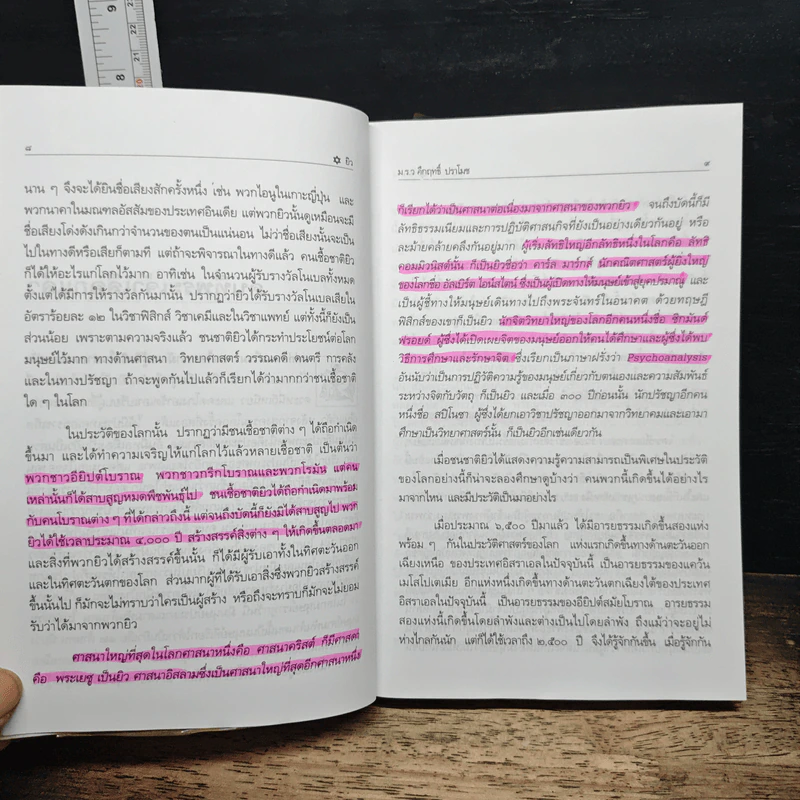 8
22
21
20
๘
✡ ยิว
นาน ๆ จึงจะได้ยินชื่อเสียงสักครั้งหนึ่ง เช่น พวกไอนูในเกาะญี่ปุ่น และ
พวกนาคาในมณฑลอัสสัมของประเทศอินเดีย แต่พวกยิวนั้นดูเหมือนจะมี
ชื่อเสียงโด่งดังเกินกว่าจำนวนของตนเป็นแน่นอน ไม่ว่าชื่อเสียงนั้นจะเป็น
ไปในทางดีหรือเสียก็ตามที แต่ถ้าจะพิจารณาในทางดีแล้ว คนเชื้อชาติยิว
ก็ได้ให้อะไรแก่โลกไว้มาก อาทิเช่น ในจำนวนผู้รับรางวัลโนเบลทั้งหมด
ตั้งแต่ได้มีการให้รางวัลกันมานั้น ปรากฏว่ายิวได้รับรางวัลโนเบลเสียใน
อัตราร้อยละ ๑๒ ในวิชาฟิสิกส์ วิชาเคมีและในวิชาแพทย์ แต่ทั้งนี้ก็ยังเป็น
ส่วนน้อย เพราะตามความจริงแล้ว ชนชาติยิวได้กระทำประโยชน์ต่อโลก
มนุษย์ไว้มาก ทางด้านศาสนา วิทยาศาสตร์ วรรณคดี ดนตรี การคลัง
และในทางปรัชญา ถ้าจะพูดกันไปแล้วก็เรียกได้ว่ามากกว่าชนเชื้อชาติ
ใด ๆ ในโลก
ในประวัติของโลกนั้น ปรากฏว่ามีชนเชื้อชาติต่าง ๆ ได้ถือกำเนิด
ขึ้นมา และได้ทำความเจริญให้แก่โลกไว้แล้วหลายเชื้อชาติ เป็นต้นว่า
พวกชาวอียิปต์โบราณ พวกชาวกรีกโบราณและพวกโรมัน แต่คน
เหล่านั้นก็ได้สาบสูญหมดพืชพันธุ์ไป ชนเชื้อชาติยิวได้ถือกำเนิดมาพร้อม
กับคนโบราณต่าง ๆ ที่ได้กล่าวถึงนี้ แต่จนถึงบัดนี้ก็ยังมิได้สาบสูญไป พวก
ยิวได้ใช้เวลาประมาณ ๔,๐๐๐ ปี สร้างสรรค์สิ่งต่าง ๆ ให้เกิดขึ้นตลอดมา
และสิ่งที่พวกยิวได้สร้างสรรค์ขึ้นนั้น ก็ได้มีผู้รับเอาทั้งในทิศตะวันออก
และในทิศตะวันตกของโลก ส่วนมากผู้ที่ได้รับเอาสิ่งซึ่งพวกยิวสร้างสรรค์
ขึ้นนั้นไป ก็มักจะไม่ทราบว่าใครเป็นผู้สร้าง หรือถึงจะทราบก็มักจะไม่ยอม
รับว่าได้มาจากพวกยิว
ศาสนาใหญ่ที่สุดในโลกศาสนาหนึ่งคือ ศาสนาคริสต์ ก็มีศาสดา
คือ พระเยซู เป็นยิว ศาสนาอิสลามซึ่งเป็นศาสนาใหญ่ที่สุดอีกศาสนาหนึ่ง
ม.ร.ว คึกฤทธิ์ ปราโมช
๙
ก็เรียกได้ว่าเป็นศาสนาต่อเนื่องมาจากศาสนาของพวกยิว จนถึงบัดนี้ก็มี
ลัทธิธรรมเนียมและการปฏิบัติศาสนกิจที่ยังเป็นอย่างเดียวกันอยู่ หรือ
ละม้ายคล้ายคลึงกันอยู่มาก ผู้เริ่มลัทธิใหญ่อีกลัทธิหนึ่งในโลกคือ ลัทธิ
คอมมิวนิสต์นั้น ก็เป็นยิวชื่อว่า คาร์ล มาร์กส์ นักคณิตศาสตร์ผู้ยิ่งใหญ่
ของโลกชื่อ อัลเบิร์ต ไอน์สไตน์ ซึ่งเป็นผู้เปิดทางให้มนุษย์เข้าสู่ยุคปรมาณู และ
เป็นผู้ชี้ทางให้มนุษย์เดินทางไปถึงพระจันทร์ในอนาคต ด้วยทฤษฎี
ฟิสิกส์ของเขาก็เป็นยิว นักจิตวิทยาใหญ่ของโลกอีกคนหนึ่งชื่อ ซิกมันต์
ฟรอยด์ ผู้ซึ่งได้เปิดเผยจิตของมนุษย์ออกให้คนได้ศึกษาและผู้ซึ่งได้พบ
วิธีการศึกษาและรักษาจิต ซึ่งเรียกเป็นภาษาฝรั่งว่า Psychoanalysis
อันนับว่าเป็นการปฏิวัติความรู้ของมนุษย์เกี่ยวกับตนเองและความสัมพันธ์
ระหว่างจิตกับวัตถุ ก็เป็นยิว และเมื่อ ๓๐๐ ปีก่อนนั้น นักปรัชญาอีกคน
หนึ่งชื่อ สปิโนซา ผู้ซึ่งได้ยกเอาวิชาปรัชญาออกมาจากวิทยาคมและเอามา
ศึกษาเป็นวิทยาศาสตร์นั้น ก็เป็นยิวอีกเช่นเดียวกัน
เมื่อชนชาติยิวได้แสดงความรู้ความสามารถเป็นพิเศษในประวัติ
ของโลกอย่างนี้ก็น่าจะลองศึกษาดูบ้างว่า คนพวกนี้เกิดขึ้นได้อย่างไร
มาจากไหน และมีประวัติเป็นมาอย่างไร
เมื่อประมาณ ๖,๕๐๐ ปีมาแล้ว ได้มีอารยธรรมเกิดขึ้นสองแห่ง
พร้อม ๆ กันในประวัติศาสตร์ของโลก แห่งแรกเกิดขึ้นทางด้านตะวันออก
เฉียงเหนือ ของประเทศอิสราเอลในปัจจุบันนี้ เป็นอารยธรรมของแคว้น
เมโสโปเตเมีย อีกแห่งหนึ่งเกิดขึ้นทางด้านตะวันตกเฉียงใต้ของประเทศ
อิสราเอลในปัจจุบันนี้ เป็นอารยธรรมของอียิปต์สมัยโบราณ อารยธรรม
สองแห่งนี้เกิดขึ้นโดยลำพังและต่างเป็นไปโดยลำพัง ถึงแม้ว่าจะอยู่ไม่
ห่างไกลกันนัก แต่ก็ได้ใช้เวลาถึง ๒,๕๐๐ ปี จึงได้รู้จักกันขึ้น เมื่อรู้จักกัน